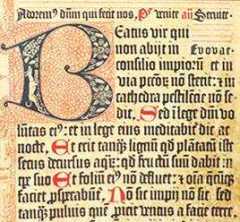 Adorem⁹ dñm qui fecit nos, Ps venite añ Seruite
Beatus vir qui
non abijt in Evovae
consilio impiorũ et in
via pctoꝝ nõ stetit: et in
cathedra pestilẽcie nõ se-
dit. Sed ĩ lege dñi vo-
lũtas ei⁹: et in lege eius meditabit̃ die ac
nocte. Et erit tanq̃ lignũ qd̃ plãtatũ est
secus decursus aq̃ꝝ: qd̃ fructũ suũ dabit ĩ
tp̃e suo Et foliũ ei⁹ nõ defluet: et oĩa q̃cũqꝫ
faciet, ꝓsperabũt. Nõ sic impij nõ sic: sed
tanq̃ puluis quẽ proicit ventus a facie terre